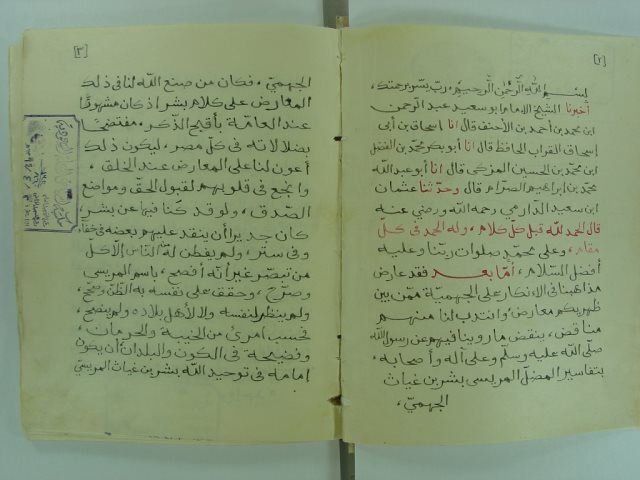 [٢]
بسم الله الرحمن الرحيم، رب يسر برحمتك،
أخبرنا الشيخ الإمام أبو سعيد عبد الرحمن
ابن محمد بن أحمد بن الأحنف قال انا اسحاق بن أبى
إسحاق القراب الحافظ قال انا أبو بكر محمد بن الفضل
ابن محمد بن الحسين المزكى قال انا أبو عبد الله
محمد بن إبراهيم الصرام قال وحدثنا عثمان
ابن سعيد الدارمي رحمه الله ورضي عنه
قال الحمد لله قبل كل كلام، وله الحمد فى كل
مقام، وعلى محمد صلوات ربنا وعليه
أفضل السلام، أما بعد فقد عارض
مذاهبنا فى الانكار على الجهمية ممن بين
ظهريكم معارض، وانتدب لنا منهم
مناقض، ينقض ما روينا فيهم عن رسول الله
صلى الله عليه وسلم وعلى آله وأصحابه،
بتفاسير المضل المريسى بشر بن غياث
الجهمى،
[٣]
الجهمى، فكان من صنع الله لنا فى ذلك
المعارض على كلام بشر اذ كان مشهورا
عند العامة بأقبح الذكر، مفتضحا
بضلالاته فى كل مصر، ليكون ذلك
أعون لنا على المعارض عند الخلق،
وانجع فى قلوبهم لقبول الحق ومواضع
الصدق، ولو قد كنا فيها عن بشر
كان جديرا أن ينفذ عليهم بعضه فى خفاء
وفى ستر، ولم يفطن له الناس إلا كل
من تبصر غير أنه أفصح، باسم المريسى
وصرح، وحقق على نفسه به الظن وصحح،
ولم ينظر لنفسه ولا لأهل بلاده ولم ينصح،
فحسب امرئ من الخيبة والحرمان،
وفضيحة فى الكون والبلدان أن يكون
إمامه فى توحيد الله بشر بن غياث المريسى